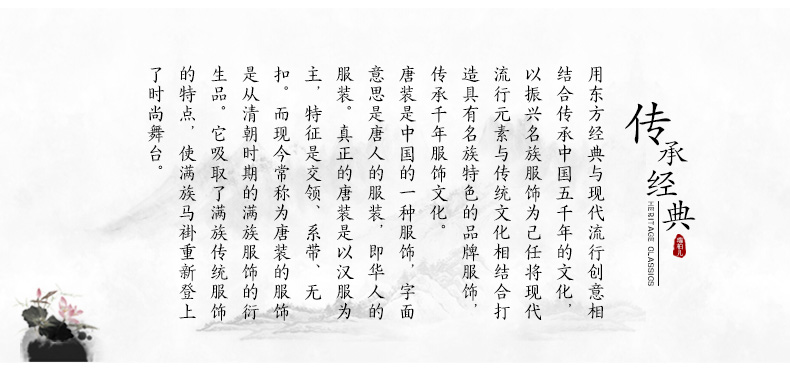 传承经典
HERITAGE CLASSICS
用东方经典与现代流行创意相
结合传承中国五千年的文化，
以振兴名族服饰为己任将现代
流行元素与传统文化相结合打
造具有名族特色的品牌服饰，
传承千年服饰文化。
唐装是中国的一种服饰，字面
意思是唐人的服装，即华人的
服装。真正的唐装是以汉服为
主，特征是交领、系带、无
扣。而现今常称为唐装的服饰
是从清朝时期的满族服饰的衍
生品。它吸取了满族传统服饰
的特点，使满族马褂重新登上
了时尚舞台。